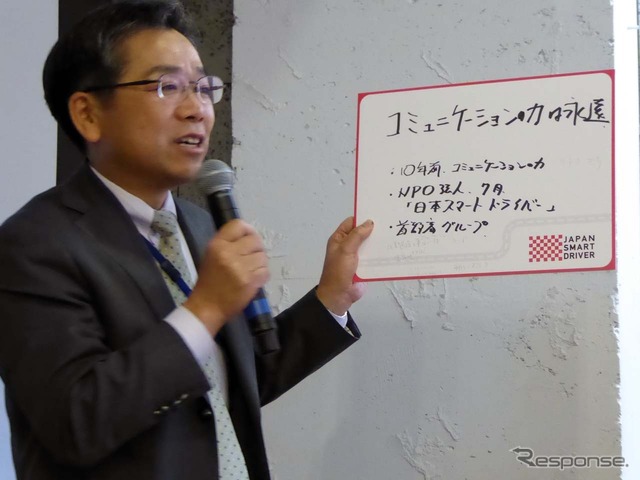 コミュニケーションの力は永遠
・10年前、コミュニケーションの力
・NPO法人、7月
「日本スマートドライバー」
・首都高グループ
JAPAN
SMART
DRIVER
Response.